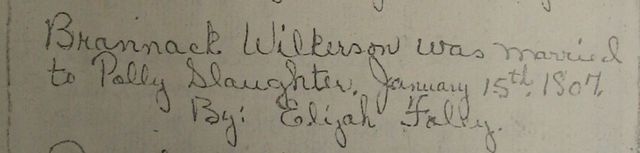 Brannack Wilkerson was married
to Polly Slaughter, January 15th, 1807,
By: Elijah Foley.